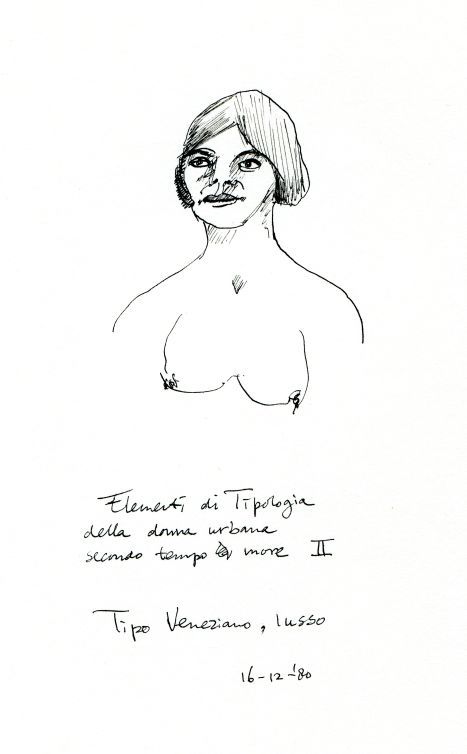 Elementi di Tipologia
della donna urbana
secondo tempo e more II
Tipo Veneziano, lusso
16-12-'80